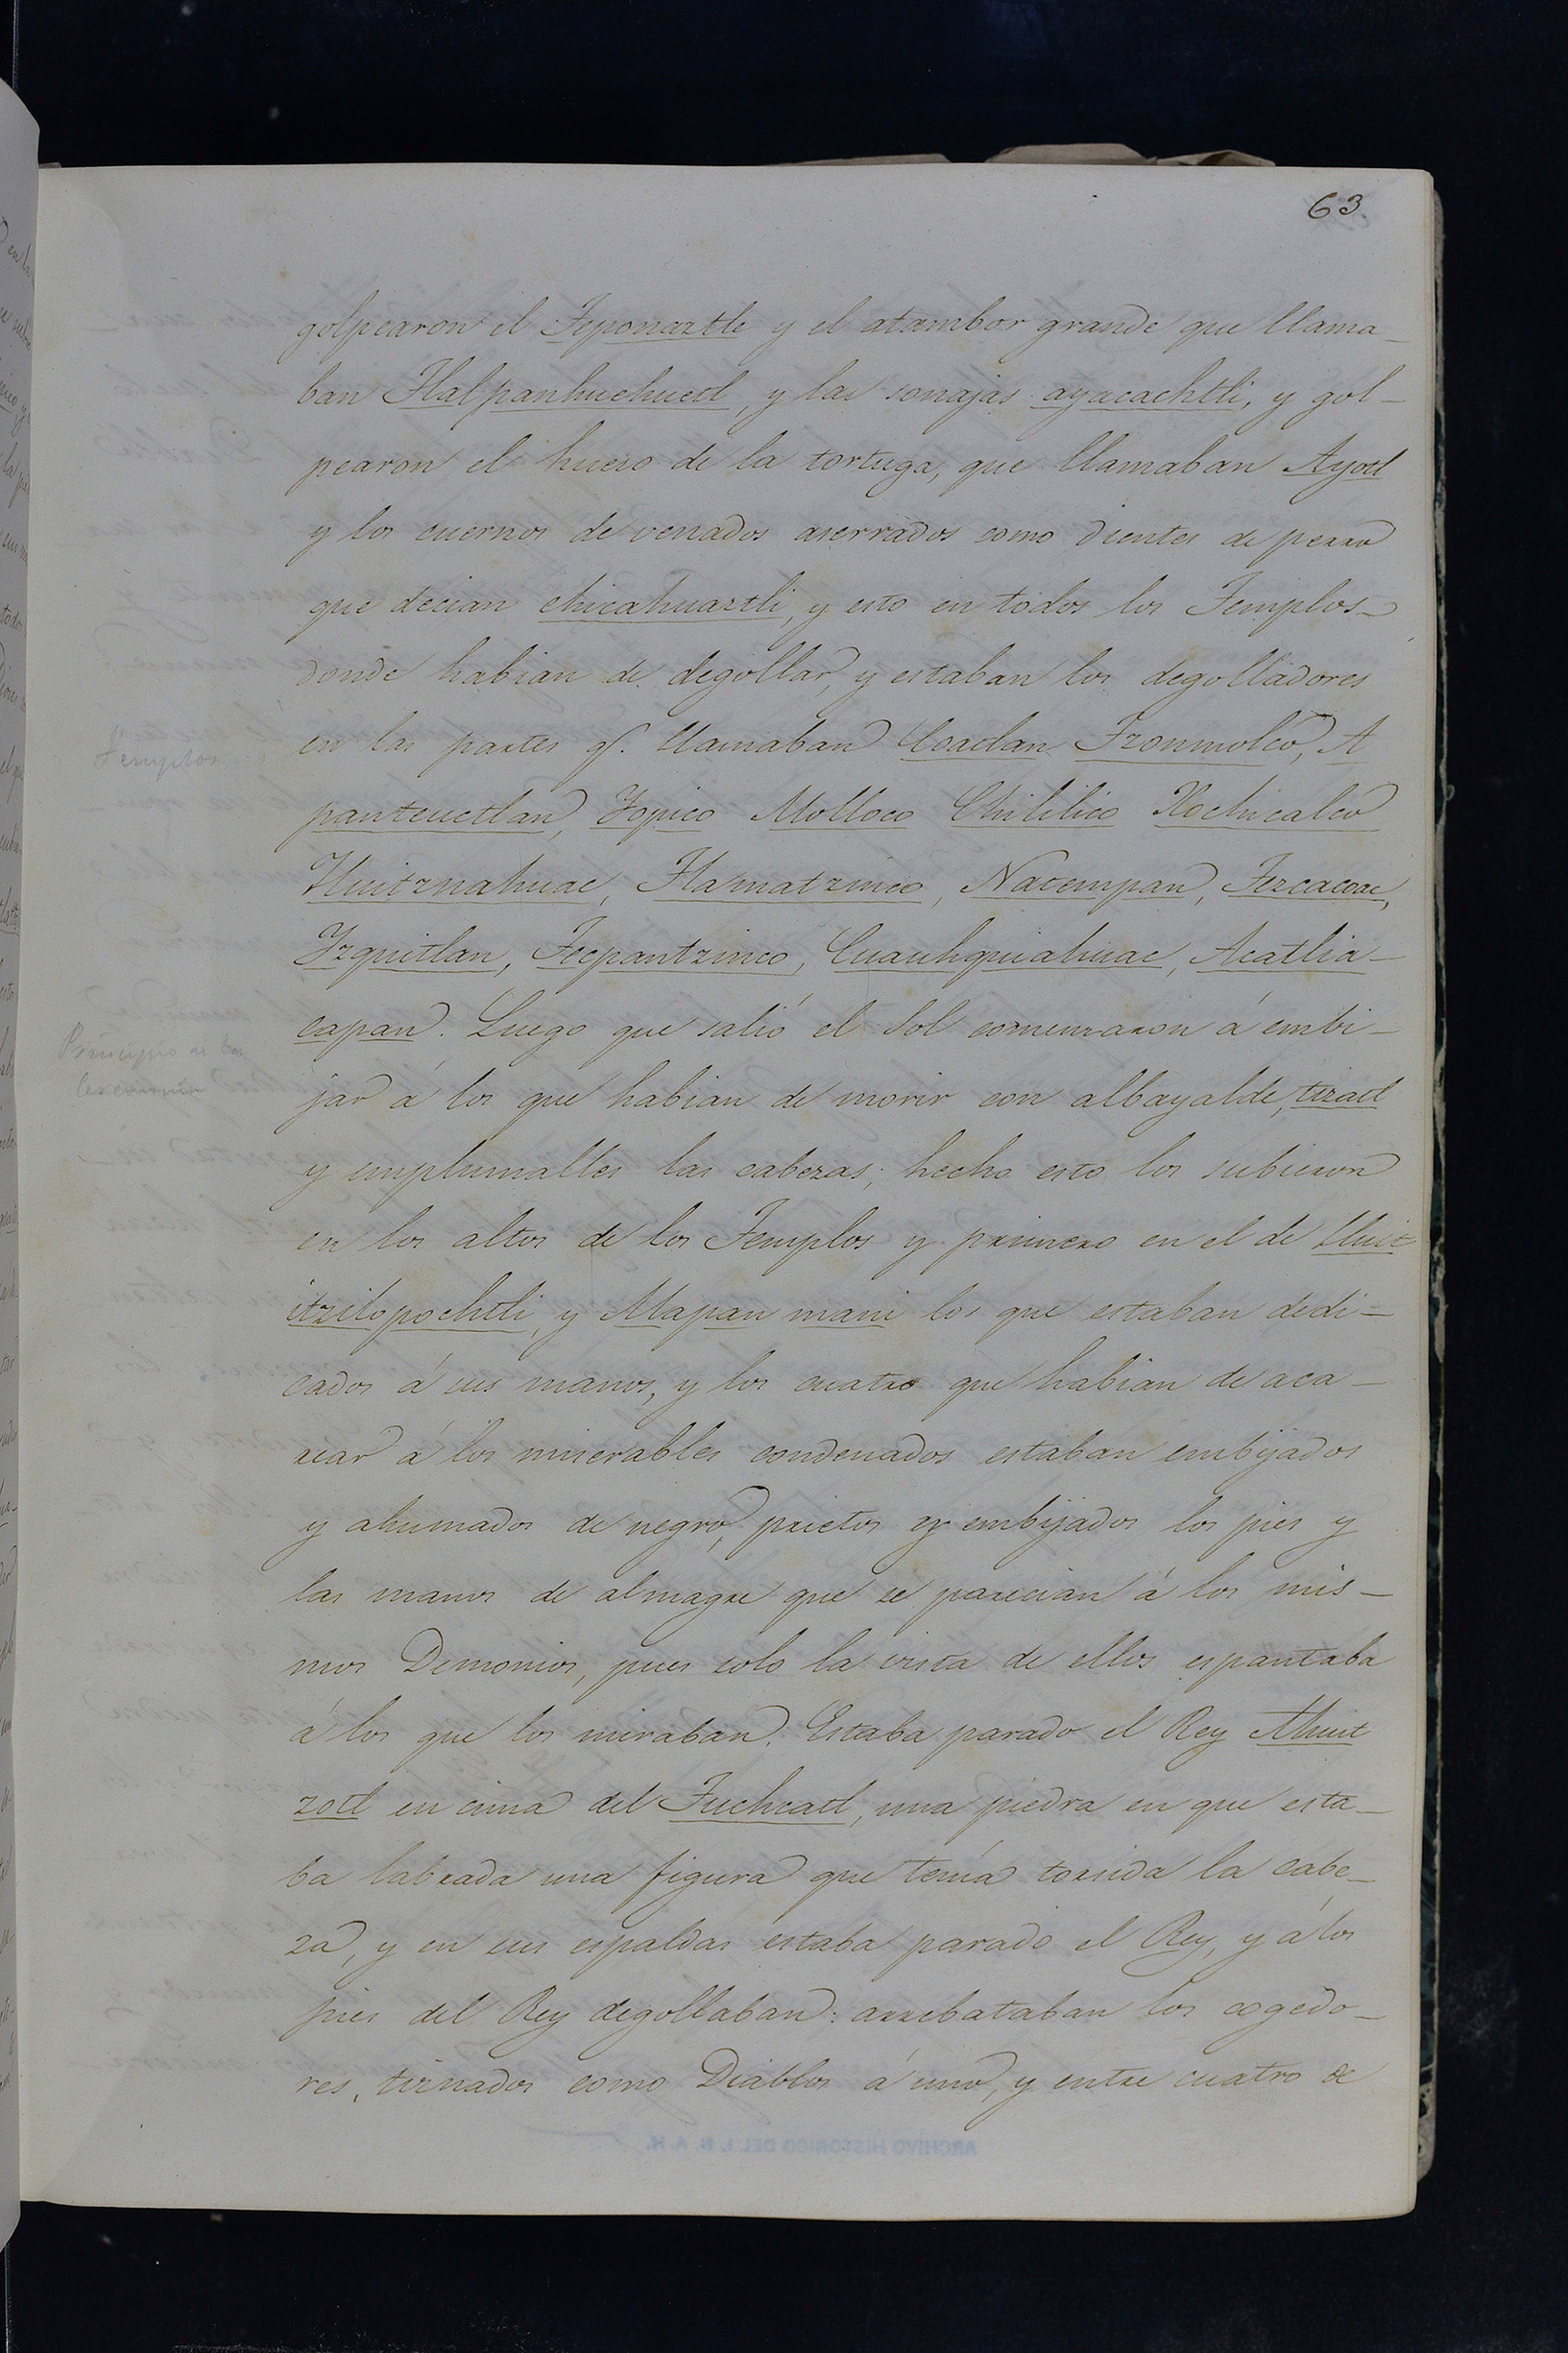 63.
golpearon el Teponaztle y el atambor grande que llama-
ban Tlalpanhuehuetl, y las sonajas ayacachtli, y gol-
pearon el hueso de la tortuga, que llamaban Ayotl
y los cuernos de venados aserrados como dientes de perro
que decian chicahuaztli, y esto en todos los Templos
donde habian de degollar, y estaban los degolladores
Templos
en las partes q.e llamaban Coatlan Tzonmolco, A
panteuctlan, Yopico Molloco Chililico Xochicalco
Huitznahuac, Tlamatzinco, Natempan, Tezcacoac,
Yzquitlan, Tecpantzinco, Cuauhquiahuac, Acatlia-
Principio de la
ceremonia
capan. Luego que salió el Sol comenzaron á embi-
jar á los que habian de morir con albayalde, tizatl
y emplumalles las cabezas; hecho esto los subieron
en los altos de los Templos y primero en el de Huit
itzilopochtli, y Mapan mani los que estaban dedi-
cados á sus manos, y los cuatro que habian de aca-
rear á los miserables condenados estaban embijados
y ahumados de negro, prietos y embijados los pies y
las manos de almagre que se parecian á los mis-
mos Demonios, pues solo la vista de ellos espantaba
á los que los miraban. Estaba parado el Rey Ahuit
zotl en cima del Tuchcatl, una piedra en que esta-
ba labrada una figura que tenía torcida la cabe-
za, y en sus espaldas estaba parado el Rey, y á los
pies del Rey degollaban: arrebataban los cogedo-
res, tiznados como Diablos á uno, y entre cuatro de
ARCHIVO HISTORICO DEL I. N. A. H.